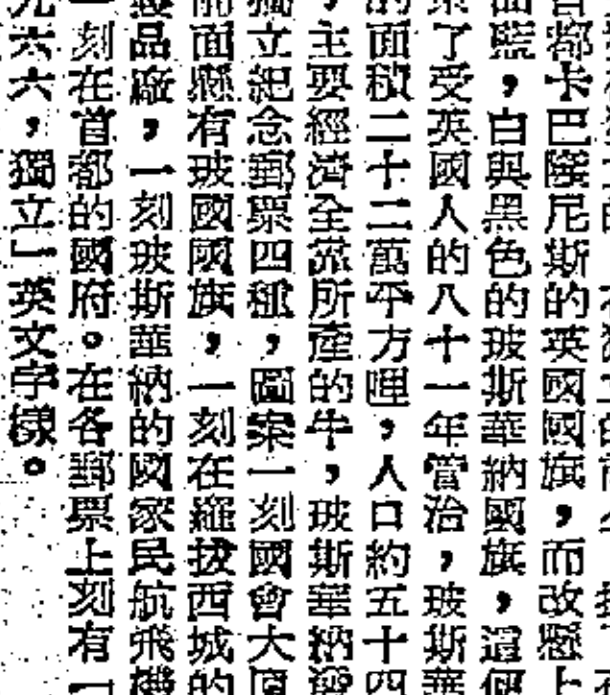 首都卡巴隆尼斯的英國國旗，而改懸上
藍，白與黑色的玻斯華納國旗，這個
了受英國人的八十一年管治，玻斯華
的面積二十二萬平方哩，人口約五十四
，主要經濟全靠所產的牛，玻斯華納
獨立紀念郵票四種，圖案一刻國會大
前面懸有玻國國旗，一刻在羅拔西城的
品廠，一刻玻斯華納的國家民航飛機
一刻在首都的國府。在各郵票上刻有「一
九六六，獨立」英文字樣。